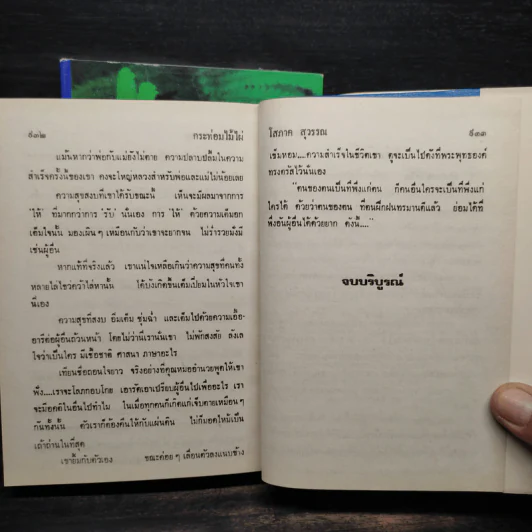 ๕๓๒ กระท่อมไม้ไผ่
แม้นหากว่าพ่อกับแม่ยังไม่ตาย ความปลาบปลื้มในความ
สำเร็จครั้งนี้ของเขา คงจะใหญ่หลวงสำหรับพ่อและแม่ไม่น้อยเลย
ความสุขสงบที่เขาได้รับขณะนี้ เห็นจะมีผลมาจากการ
ให้ ที่มากกว่าการ รับ นั่นเอง การ ให้ ด้วยความเต็มอก
เต็มใจนั้น มองเผินๆ เหมือนกับว่าเขาจะยากจน ไม่ร่ำรวยมั่งมี
เช่นผู้อื่น
หากแท้ที่จริงแล้ว เขาแน่ใจเหลือเกินว่าความสุขที่คนทั้ง
หลายใฝ่ไขว่คว้าไล่หานั้น ได้บังเกิดขึ้นเต็มเปี่ยมในหัวใจเขา
นี่เอง
ความสุขที่สงบ อิ่มเต็ม ชุ่มฉ่ำ และเต็มไปด้วยความเอื้อ-
อารีต่อผู้อื่นถ้วนหน้า โดยไม่ว่านี่เรานั่นเขา ไม่พักสงสัย ลังเล
ใจว่าเป็นใคร มีเชื้อชาติ ศาสนา ภาษาอะไร
เทียนชื่อถอนใจยาว จริงอย่างที่คุณหมออำนวยพูดให้เขา
ฟัง....เราจะโลภกอบโกย เอารัดเอาเปรียบผู้อื่นไปเพื่ออะไร เรา
จะมีอคติในอื่นไปทำไม ในเมื่อทุกคนก็เกิดแก่เจ็บตายเหมือนๆ
กันทั้งนั้น ตัวเราก็ต้องคืนให้กับแผ่นดิน ไม่ก็มอดไหม้เป็น
เถ้าถ่านในที่สุด
เขายิ้มกับตัวเอง ขณะค่อยๆ เลื่อนตัวลงแนบข้าง
โสภาค สุวรรณ ๕๓๓
เข็มหอม....ความสำเร็จในชีวิตเขา ดูจะเป็นไปดังที่พระพุทธองค์
ทรงตรัสไว้นั่นเอง
"ตนของตนเป็นที่พึ่งแก่ตน ก็คนอื่นใครจะเป็นที่พึ่งแก่
ใครได้ ด้วยว่าตนของตน ที่ตนฝึกฝนทรมานดีแล้ว ย่อมได้ที่
พึ่งอันผู้อื่นได้ด้วยยาก ดังนี้...."
จบบริบูรณ์